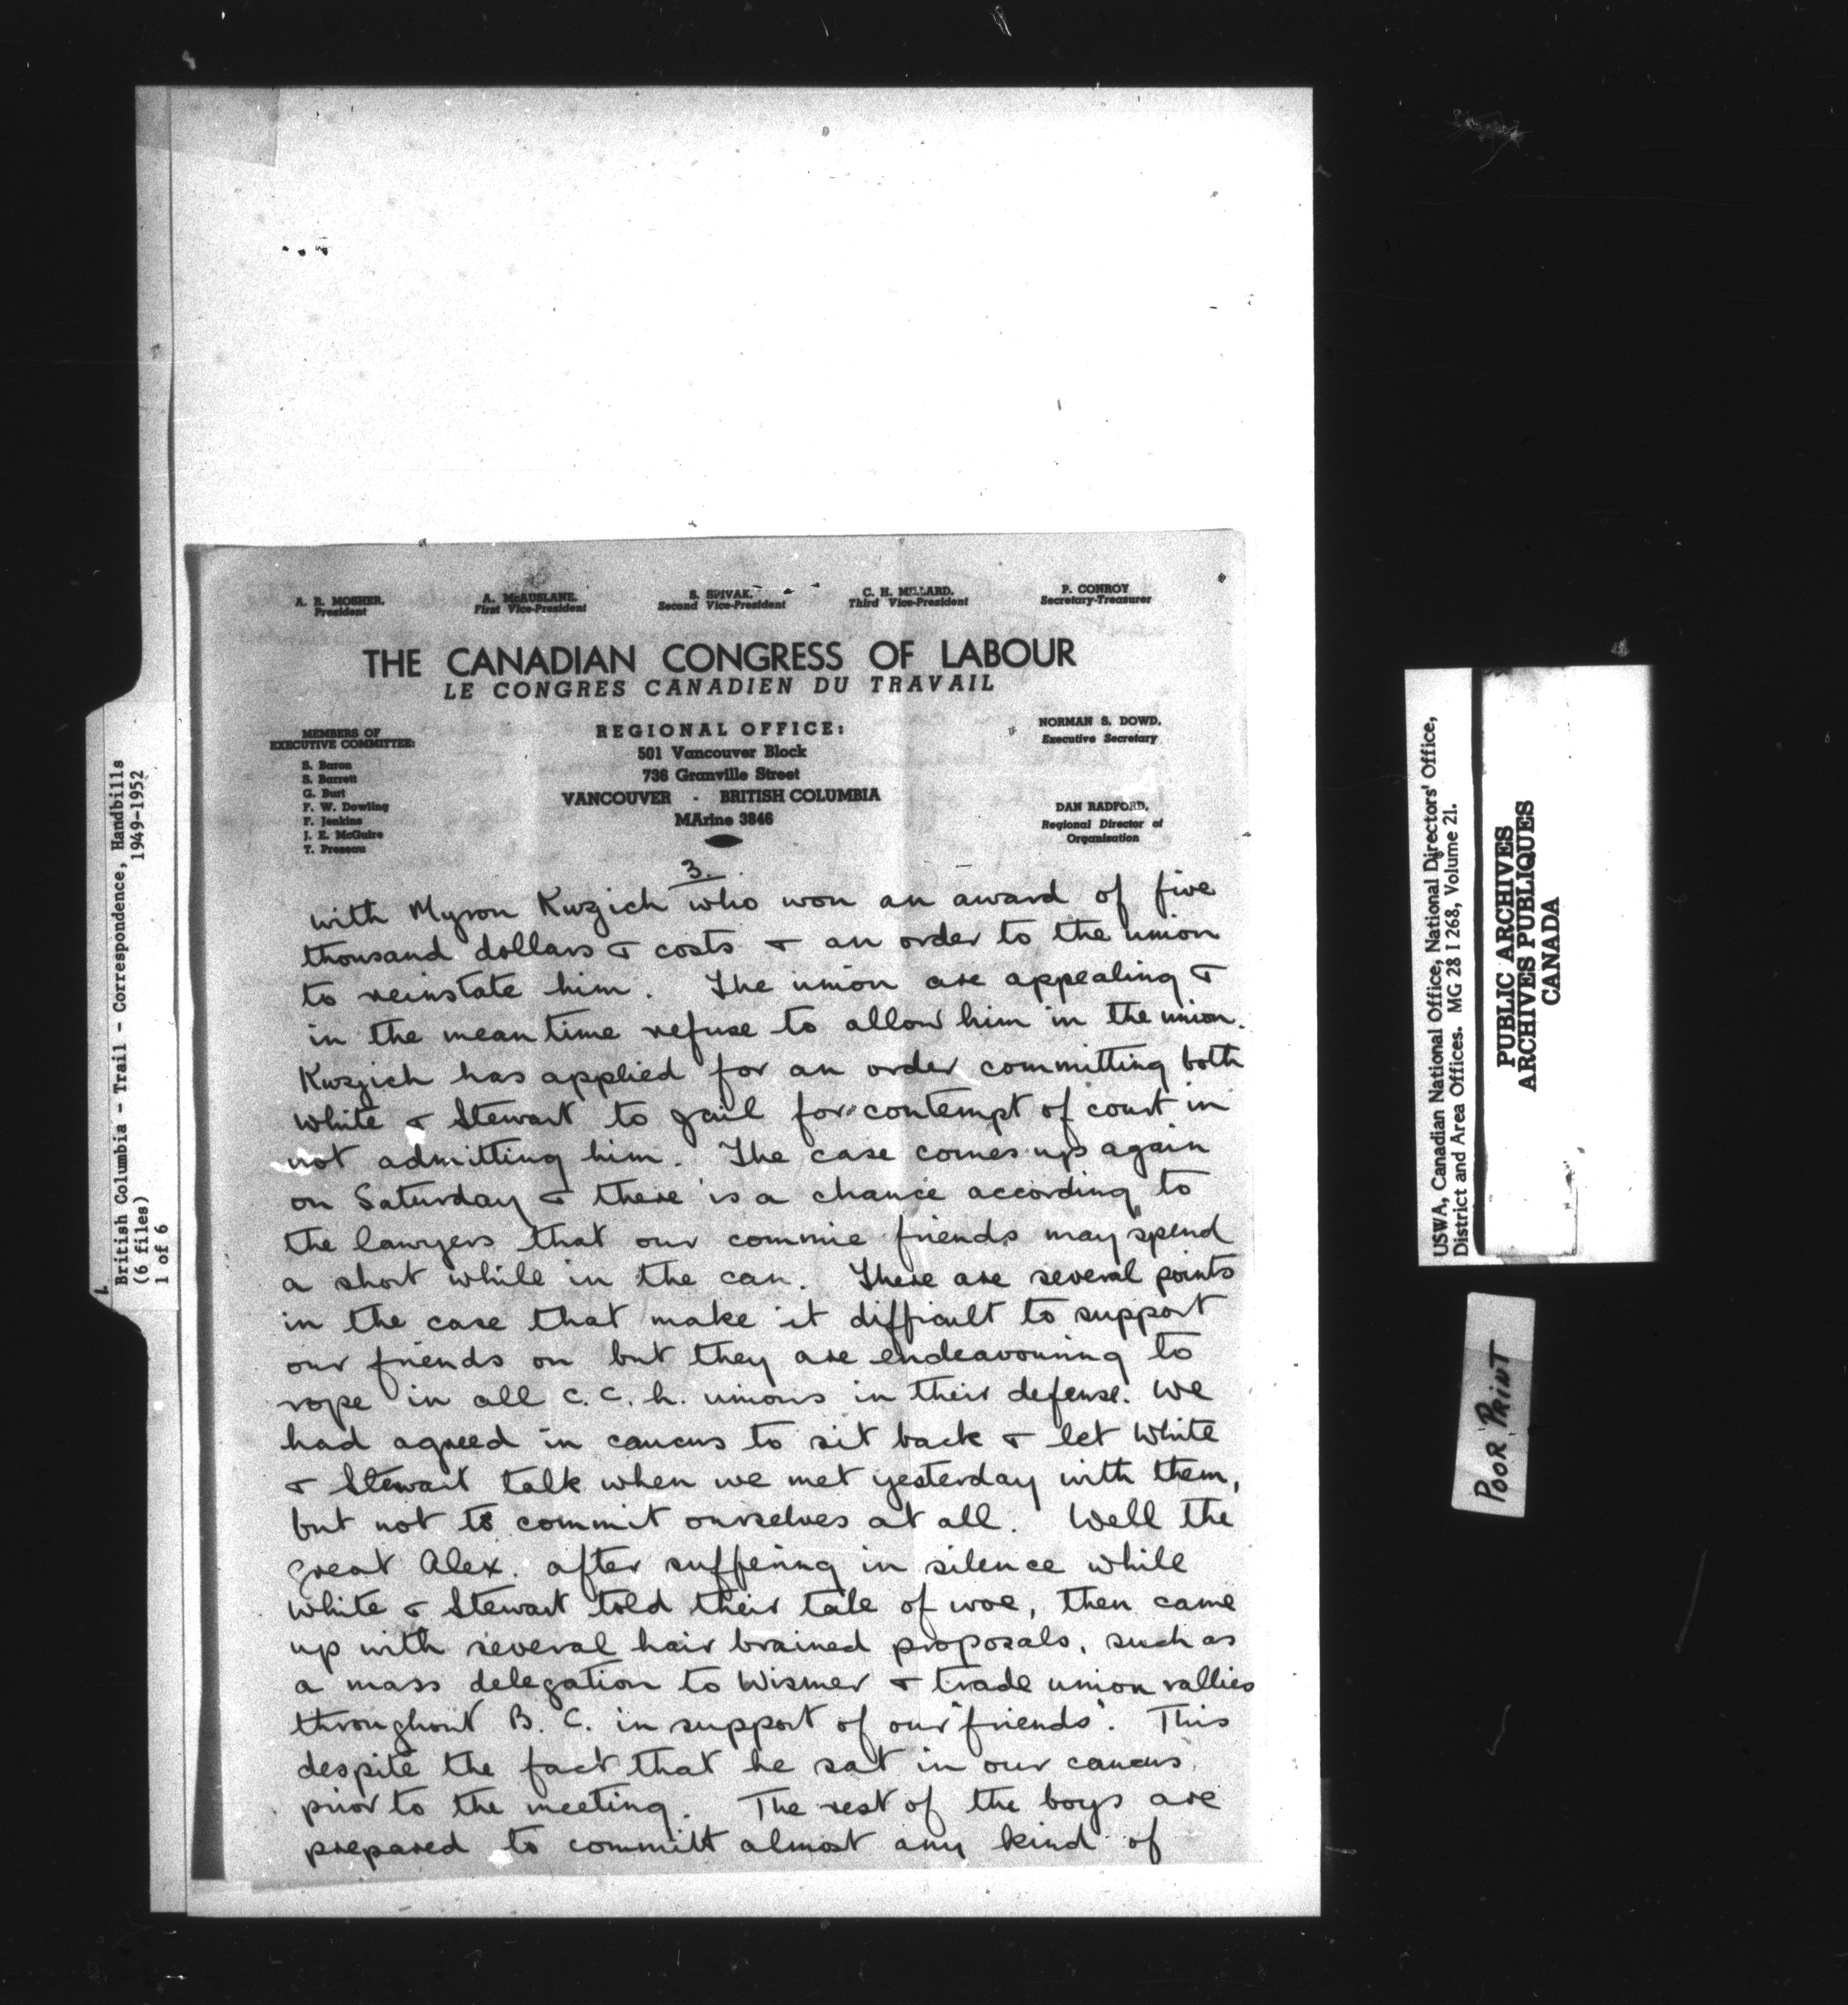 A. R. MOSHER,
President
A. McAUSLANE,
First Vice-President
S. SPIVAK,
Second Vice-President
C. H. MILLARD,
Third Vice-President
P. CONROY
Secretary-Treasurer
THE CANADIAN CONGRESS OF LABOUR
LE CONGRES CANADIEN DU TRAVAIL
MEMBERS OF
EXECUTIVE COMMITTEE:
S. Baron
S. Barrett
G. Burt
F. W. Dowling
F. Jenkins
J. E. McGuire
T. Preseau
REGIONAL OFFICE:
501 Vancouver Block
736 Granville Street
VANCOUVER - BRITISH COLUMBIA
MArine 3846
NORMAN S. DOWD,
Executive Secretary
DAN RADFORD,
Regional Director of
Organisation
3.
with Myron Kuzich who won an award of five
thousand dollars & costs & an order to the union
to reinstate him. The union are appealing &
in the mean time refuse to allow him in the union.
Kuzich has applied for an order committing both
White & Stewart to jail for contempt of court in
not admitting him. The case comes up again
on Saturday & there is a chance according to
the lawyers that our commie friends may spend
a short while in the can. There are several points
in the case that make it difficult to support
our friends on but they are endeavouring to
rope in all C. C. L. unions in their defense. We
had agreed in caucus to sit back & let White
& Stewart talk when we met yesterday with them,
but not to commit ourselves at all. Well the
great Alex. after suffering in silence while
White & Stewart told their tale of woe, then came
up with several hair brained proposals, such as
a mass delegation to Wismer & trade union rallies
throughout B. C. in support of our "friends". This
despite the fact that he sat in our caucus
prior to the meeting. The rest of the boys are
prepared to committ almost any kind of
1.
British Columbia - Trail - Correspondence, Handbills
(6 files) 1949-1952
1 of 6
USWA, Canadian National Office, National Directors' Office,
District and Area Offices. MG 28 I 268, Volume 21.
PUBLIC ARCHIVES
ARCHIVES PUBLIQUES
CANADA
POOR PRINT